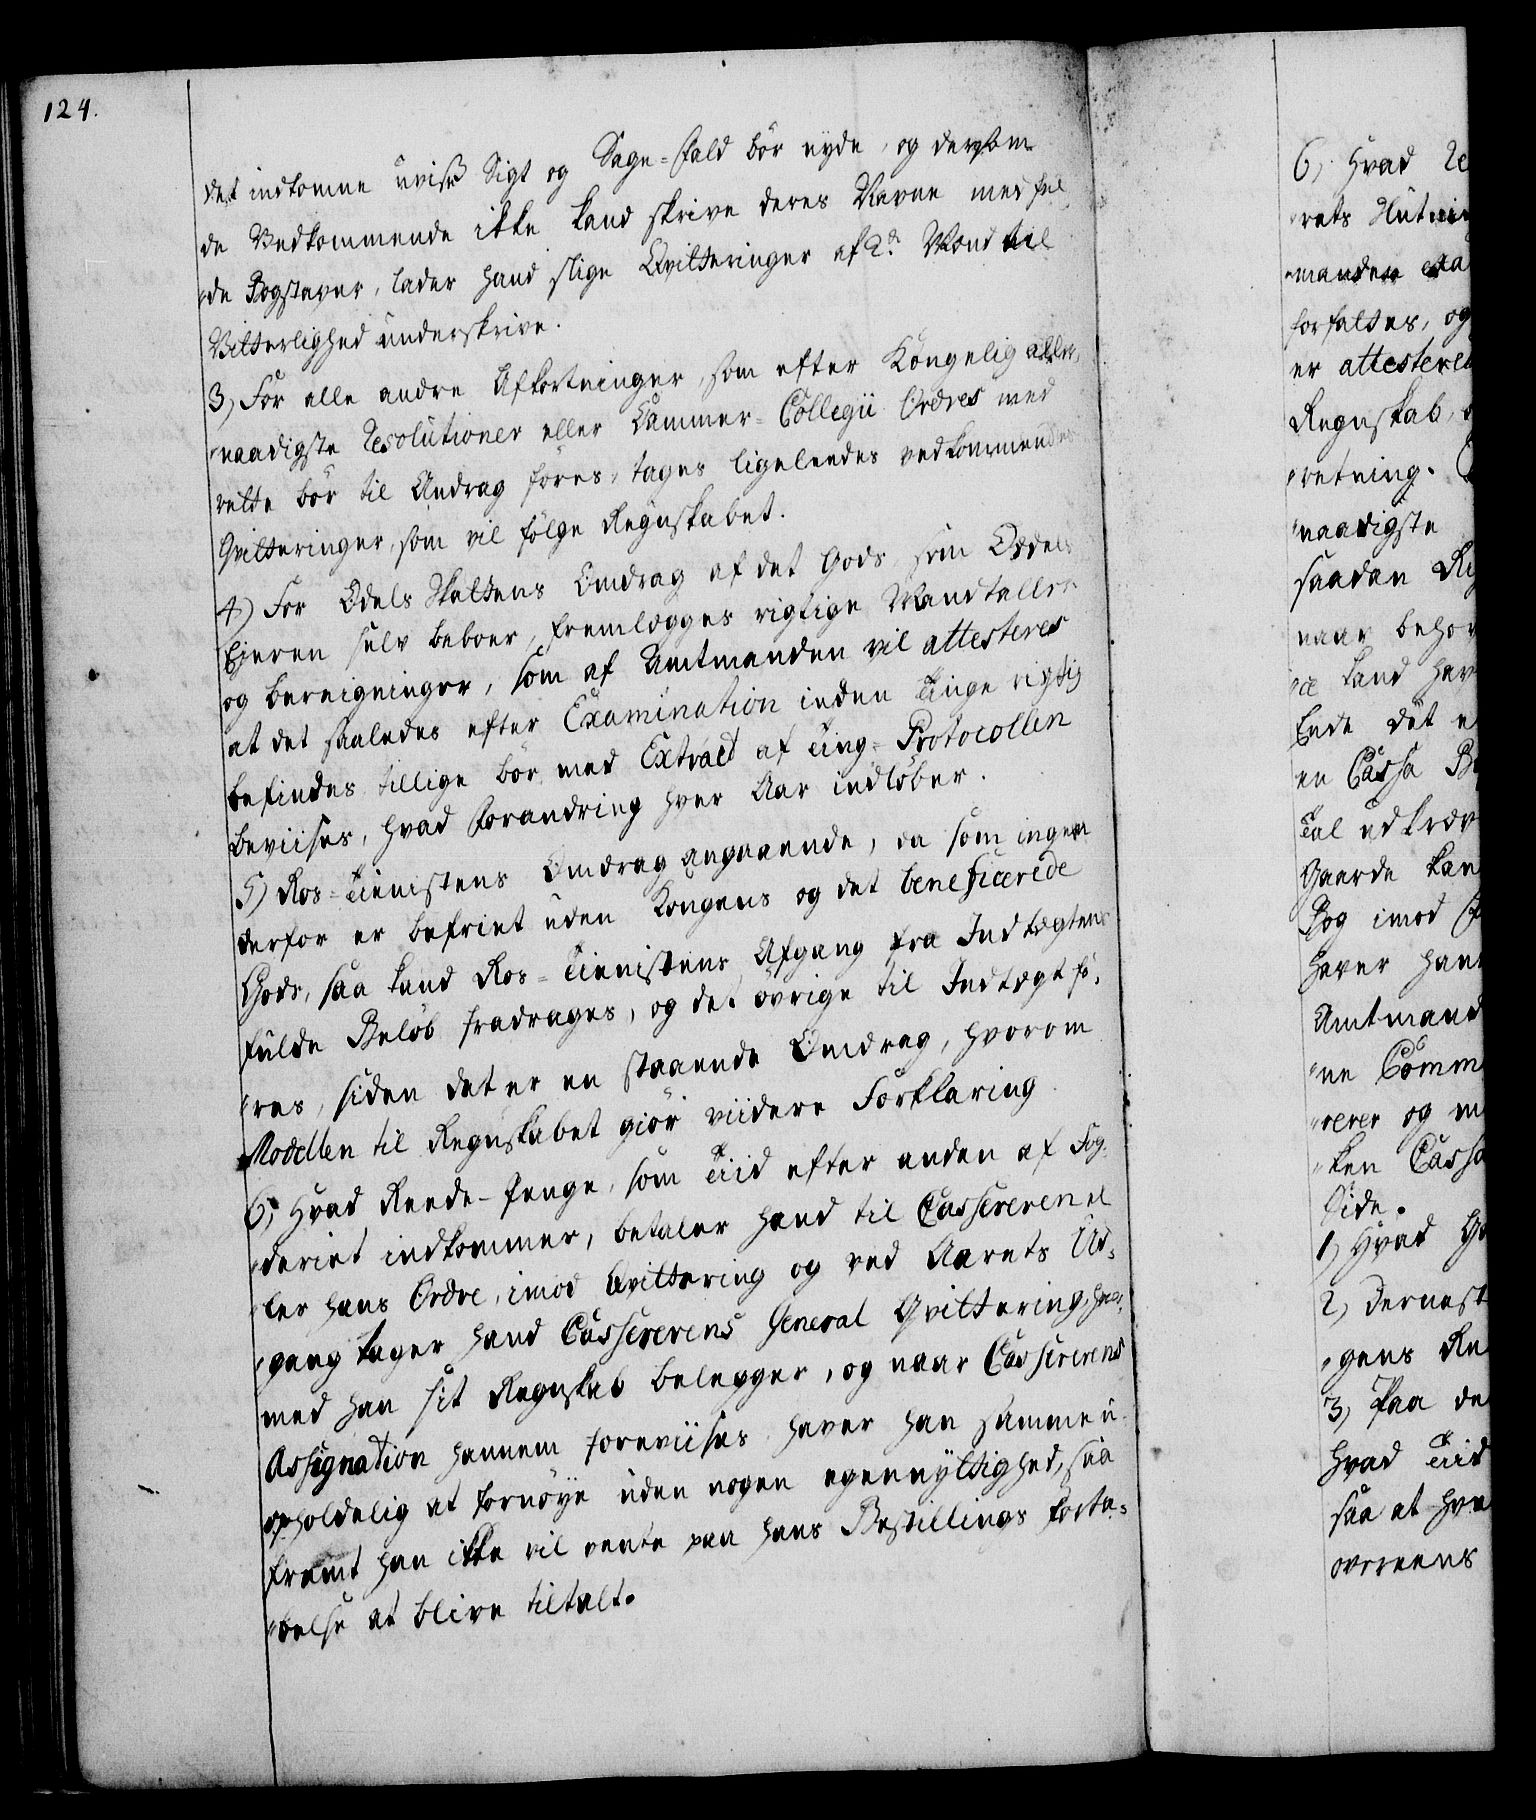 124.
det indkomne uvise Sigt og Sage-Fald bör nyde, og dersom
de Vedkommende ikke kand skrive deres Navne med ful
de Bogstaver, lader hand slige Qvitteringer af 2de Mænd til
Vitterlighed underskrive.
3) For alle andre Afkortninger, som efter Kongelig aller-
naadigste Resolutioner eller Cammer-Collegii Ordres med
rette bör til Andrag föres, tages ligeledes vedkommendes
Qvitteringer, som vil fölge Regnskabet.
4) For Odels Skattens Omdrag af det Gods, som Oddels
Ejeren selv beboer, fremlægges rigtige Mandtaller
og bereigninger, som af Amtmanden vil attesteres
at det saaledes efter Examination inden Tinge rigtig
befindes, tillige bör med Extract af Ting-Protocollen
beviises, hvad Forandring hver Aar indlöber.
5) Ros-Tienistens Omdrag angaaende, da som ingen
derfor er befriet uden Kongens og det beneficerede
Gods, saa kand Ros-Tienistens Afgang fra Indtægtens
fulde Belöb fradrages, og det övrige til Indtægt fö-
res, siden det er en staaende Omdrag, hvorom
Modellen til Regnskabet giör viidere Forklaring
6, Hvad Reede-Penge, som Tiid efter anden af Fog-
deriet indkommer, betaler hand til Cassereren el
ler hans Ordre, imod Qvittering og ved Aarets Ud-
gang tager hand Cassererens General Qvittering, hvor-
med han sit Regnskab belegger, og naar Cassererens
Assignation hannem foreviises haver han samme u-
opholdelig at fornöye uden nogen egennyttighed, saa
fremt han ikke vil vente paa hans Bestillings forta-
belse at blive tiltalt.
6, Hvad
rets
mander
forfaltes, og
er attestered
Regnskab,
retning.
naadigste
saadan
naar behov
kand hav
Ende det
en Cassa
Tal udkræv
Gaarde kan
Bog imod
haver han
Amtmand
ne Comm
og
ken Cassa
Side.
1) Hvad
2, dernest
gens
3, Paa de
hvad Tiid
saa at hve
overeens